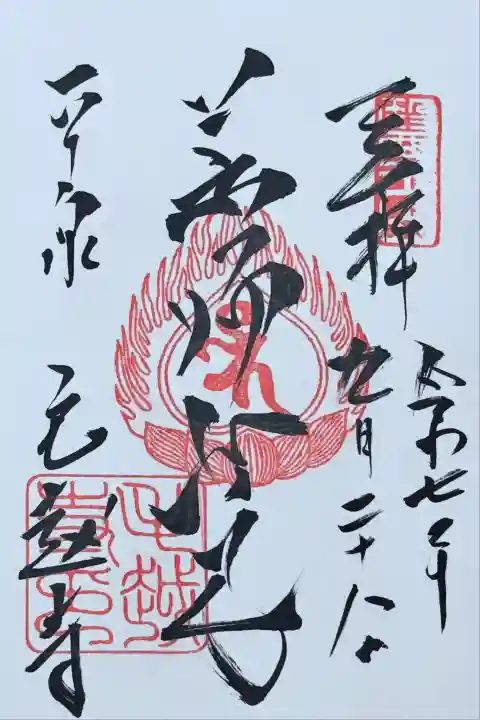 奉拝
令和七年
九月二十八日
薬師如来
平泉
毛越寺